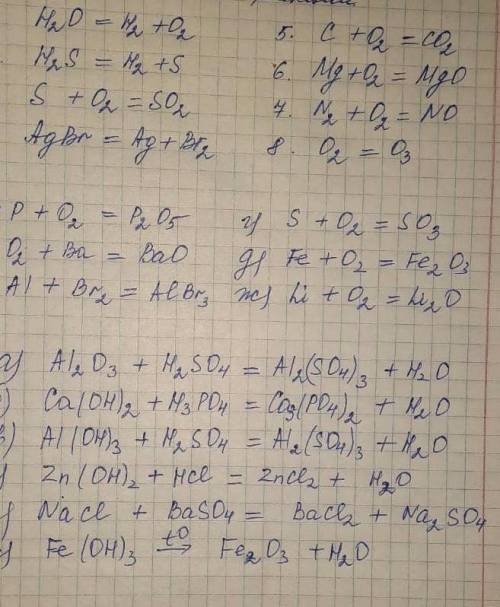 H₂O = H₂ + O₂
H₂S = H₂ + S
S + O₂ = SO₂
AgBr = Ag + Br₂
5. C + O₂ = CO₂
6. Mg + O₂ = MgO
7. N₂ + O₂ = NO
8. O₂ = O₃
P + O₂ = P₂O₅
O₂ + Ba = BaO
Al + Br₂ = AlBr₃
г) S + O₂ = SO₃
д) Fe + O₂ = Fe₂O₃
ж) Li + O₂ = Li₂O
Al₂O₃ + H₂SO₄ = Al₂(SO₄)₃ + H₂O
Ca(OH)₂ + H₃PO₄ = Ca₃(PO₄)₂ + H₂O
Al(OH)₃ + H₂SO₄ = Al₂(SO₄)₃ + H₂O
Zn(OH)₂ + HCl = ZnCl₂ + H₂O
NaCl + BaSO₄ = BaCl₂ + Na₂SO₄
Fe(OH)₃ t0→ Fe₂O₃ + H₂O